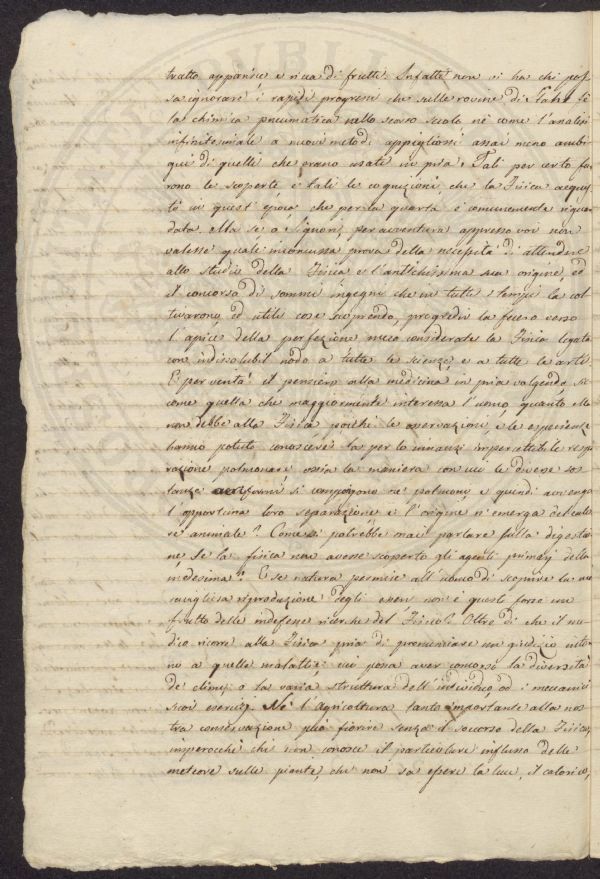 tratto apparisce e ricca di frutti. Infatti non vi ha chi pos=
sa ignorare i rapidi progressi che sulle rovine di Stahl fè
la chimica pneumatica nello scorso secolo nè come l'analisi
infinitesimale a nuovi metodi appigliossi assai meno ambi
gui di quelli che erano usati in pria. Tali per certo fu
rono le scoperte e tali le cognizioni, che la Fisica acquis
tò in quest'epoca che per la quarta è comunemente rigua
data. Ma se o Signori, per avventura appresso voi non
valesse quale inconcussa prova della necessità di attendere
allo studio della Fisica e l'antichissima sua origine, ed
il concorso di sommi ingegni che in tutti i tempi la col
tivarono, ed utili cose scoprendo, progredir la fecero verso
l'apice della perfezione meco considerate la Fisica ligata
con indissolubil nodo a tutte le scienze e a tutte le arti.
E per verità il pensiero alla medicina in pria volgendo, sic
come quella che maggiormente interessa l'uomo, quanto ella
non debbe alla Fisica poichè le osservazioni, e le esperienze
hanno potuto conoscere la per lo innanzi impercettibile resp
razione polmonare ossia la maniera con cui le diverse sos
tanze aeriformi si compongono ne' polmoni e quindi avvenga
l'opportuna loro separazione e l'origine n'emerga del calo
re animale? Come si potrebbe mai parlare sulla digestio
ne se la fisica non avesse scoperto gli agenti primarj della
medesima? E se natura permise all'uomo di scoprire la me
ravigliosa riproduzione degli esseri non è questo forse un
frutto delle indefesse ricerche del Fisico? Oltre di che il me
dico ricorre alla Fisica pria di pronunciare un giudizio intor
no a quelle malattie, cui possa aver concorso la diversità
de' climi, o la varia struttura dell'individuo od i meccanici
suoi esercizj. Nè l'Agricoltura tanto importante alla nos
tra conservazione può fiorire senza il soccorso della Fisica,
imperocchè chi non conosce il particolare influsso delle
meteore sulle piante, chi non sa essere la luce, il calorico,